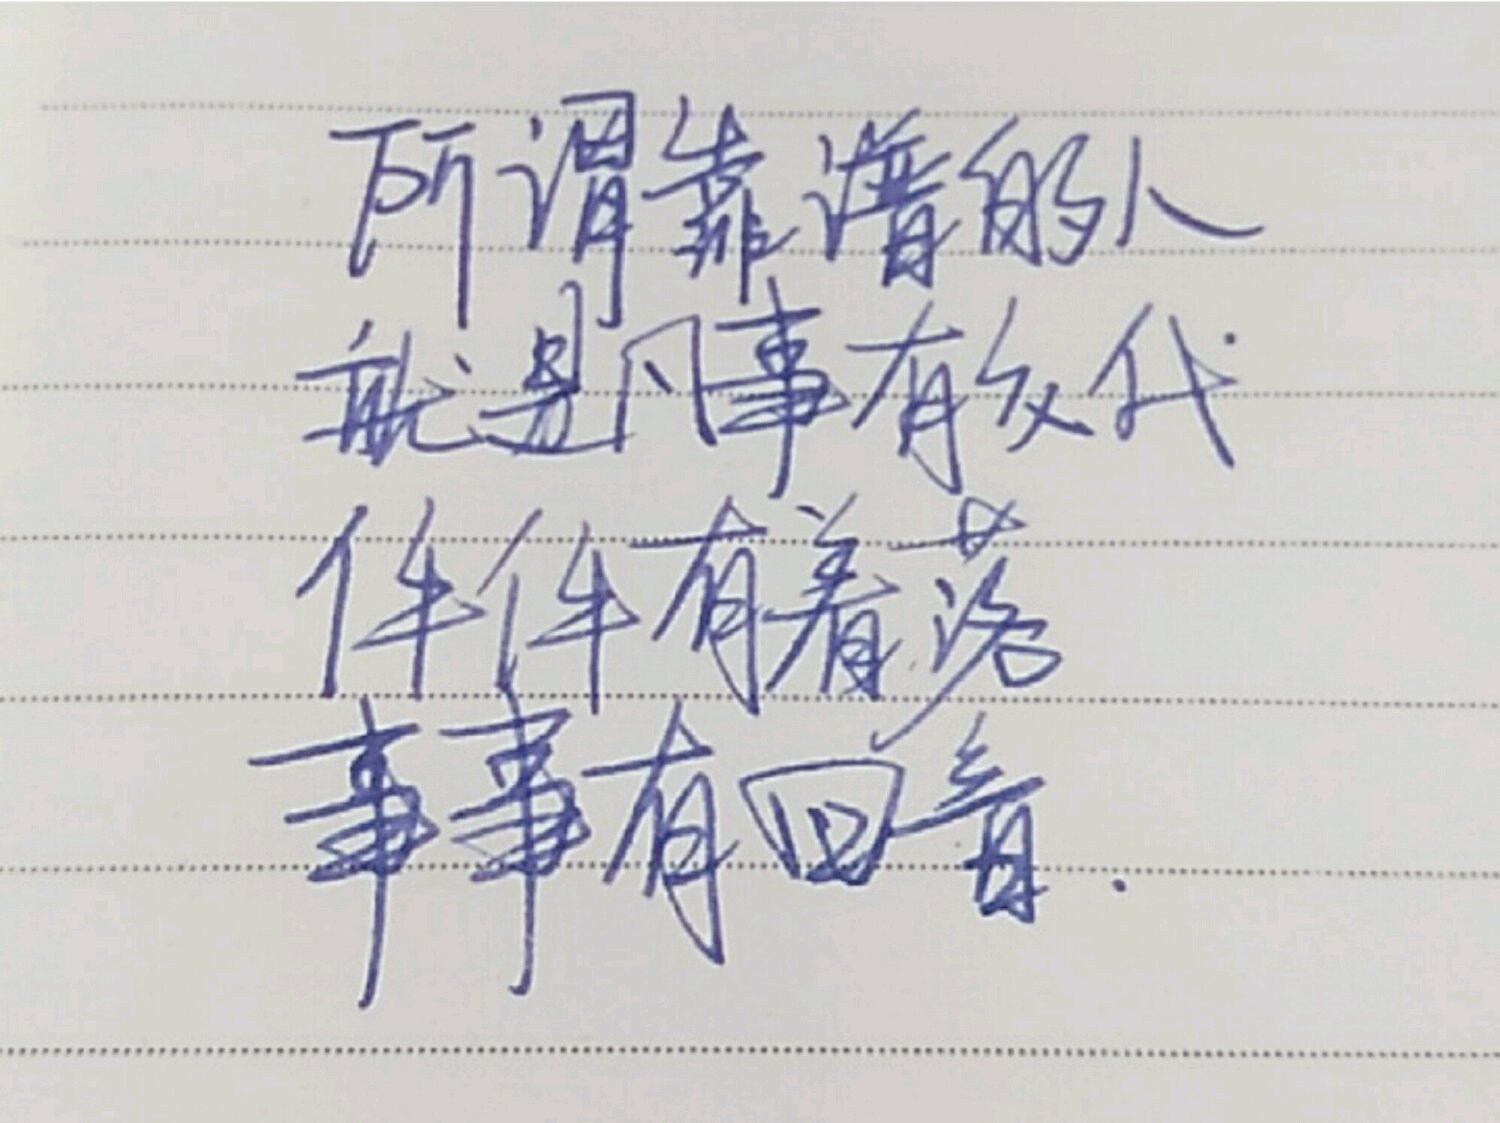 所谓靠谱的人
就是凡事有交代
件件有着落
事事有回音.